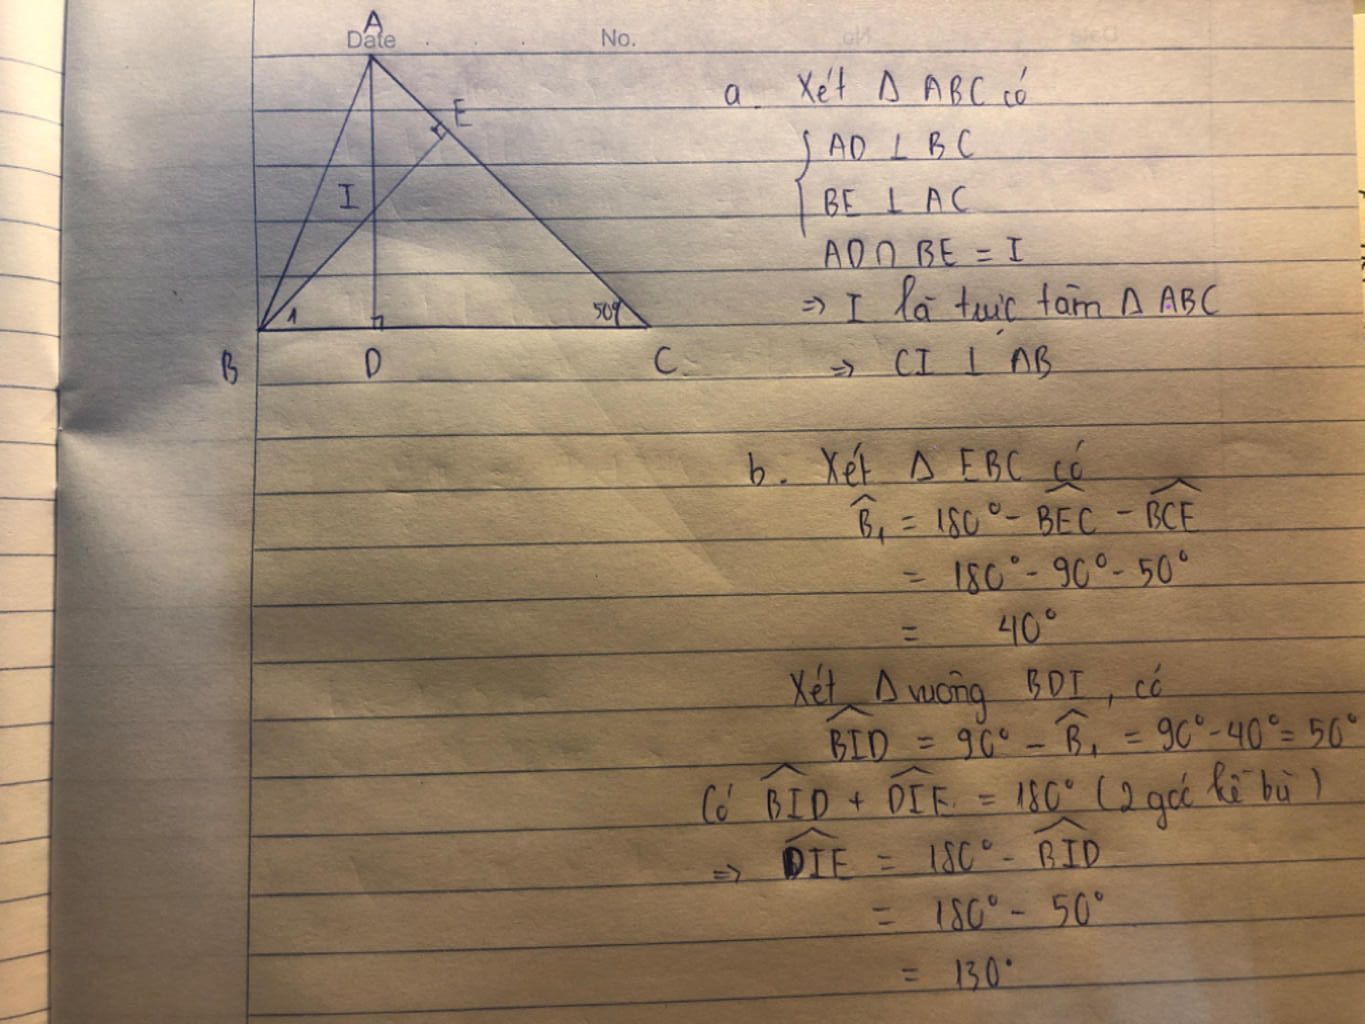 Date No.
A
E
I
1
50°
B D C
a. Xét Δ ABC có
AD ⊥ BC
BE ⊥ AC
AD ∩ BE = I
=> I là trực tâm Δ ABC
=> CI ⊥ AB
b. Xét Δ EBC có
B̂₁ = 180° - BEC - BCE
= 180° - 90° - 50°
= 40°
Xét Δ vuông BDI, có
BID = 90° - B̂₁ = 90° - 40° = 50°
Có BID + DIE = 180° (2 góc kề bù)
=> DIE = 180° - BID
= 180° - 50°
= 130°